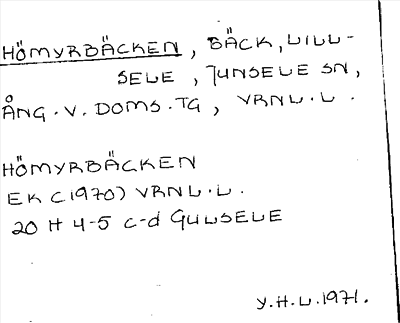 HÖMYRBÄCKEN, BÄCK, LILL-
SELE, JUNSELE SN,
ÅNG. V. DOMS. TG, VRNL. L.
HÖMYRBÄCKEN
EK (1970) VRNL. L.
20 H 4-5 c-d GULSELE
Y.H.L. 1971.